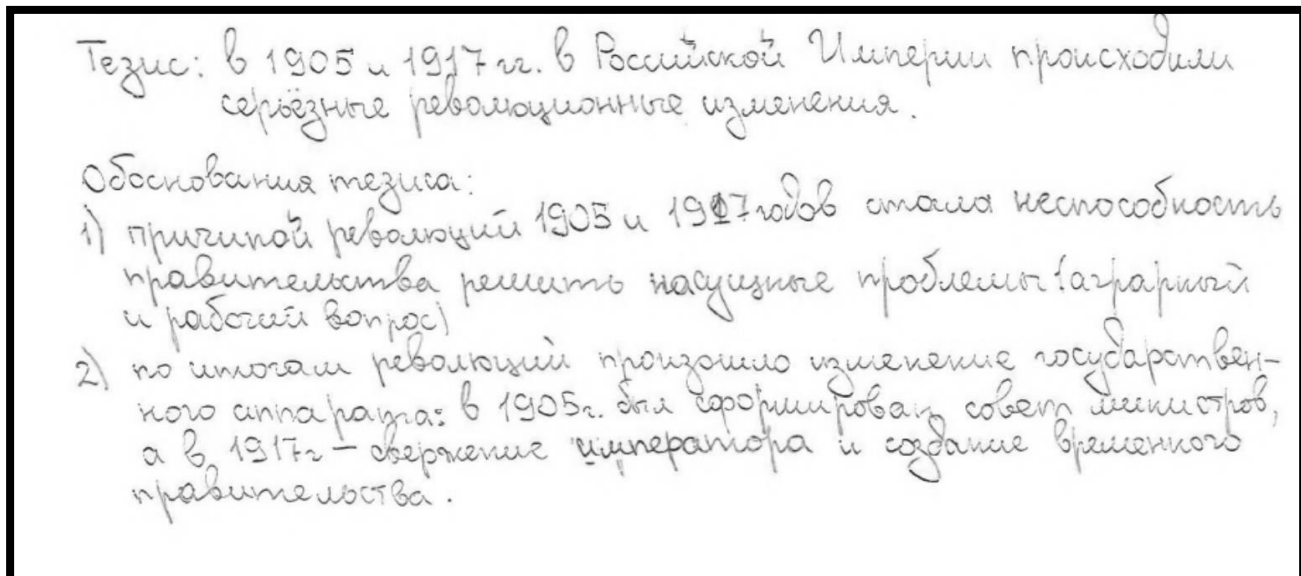 Тезис: в 1905 и 1917 гг. в Российской Империи происходили
серьёзные революционные изменения.
Обоснования тезиса:
1) причиной революций 1905 и 1917 годов стала неспособность
правительства решить насущные проблемы (аграрный
и рабочий вопрос)
2) по итогам революций произошло изменение государствен-
ного аппарата: в 1905г. был сформирован совет министров,
а в 1917г – свержение императора и создание временного
правительства.